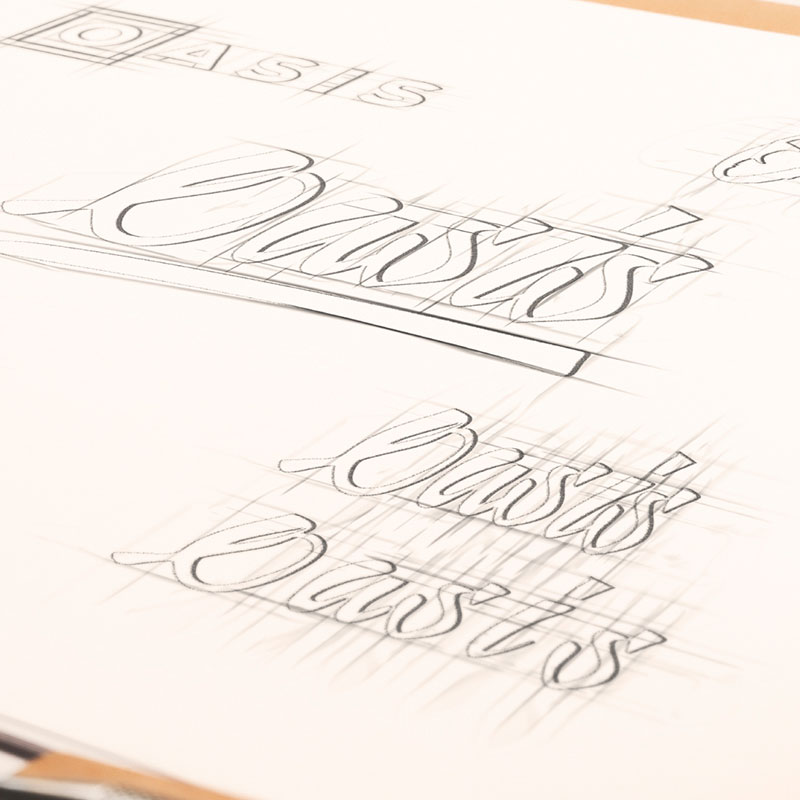 OASIS
Oasis
Oasis
Oasis